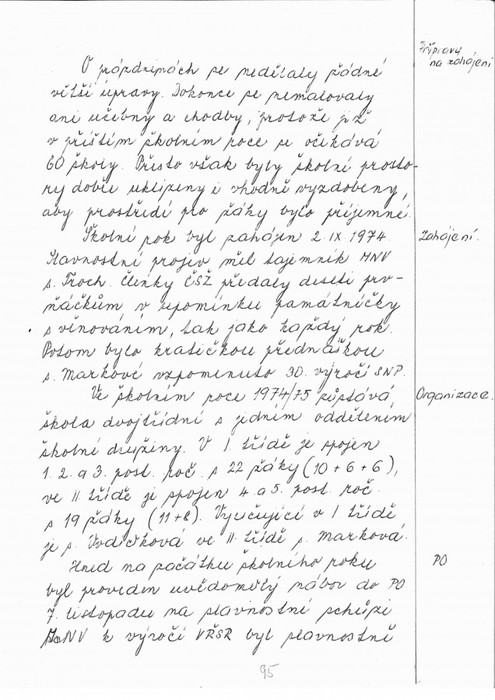 Přípravy
na zahájení
O prázdninách se nedělaly žádné
větší úpravy. Dokonce se nemalovaly
ani učebny a chodby, protože již
v příštím školním roce se očekává
60 školy. Přesto však byly školní prosto-
ry dobře uklizeny i vhodně vyzdobeny,
aby prostředí pro žáky bylo příjemné.
Školní rok byl zahájen 2. IX 1974.
Zahájení.
Slavnostní projev měl tajemník MNV
s. Troch. Členky ČSŽ předaly deseti prv-
ňáčkům v upomínku památníčky
s věnováním, tak jako každý rok.
Potom bylo kratičkou přednáškou
s. Markové vzpomenuto 30. výročí SNP.
Ve školním roce 1974/75 zůstává
Organizace.
škola dvojtřídní s jedním oddělením
školní družiny. V I. třídě je spojen
1. 2. a 3. post. roč. s 22 žáky (10+6+6),
ve II. třídě je spojen 4. a 5. post. roč.
s 19 žáky (11+8). Vyučující v I třídě
je s. Vodičková ve II. třídě s. Marková.
Hned na počátku školního roku
PO
byl proveden uvědomělý nábor do PO
7. listopadu na slavnostní schůzi
MNV k výročí VŘSR byl slavnostně
95